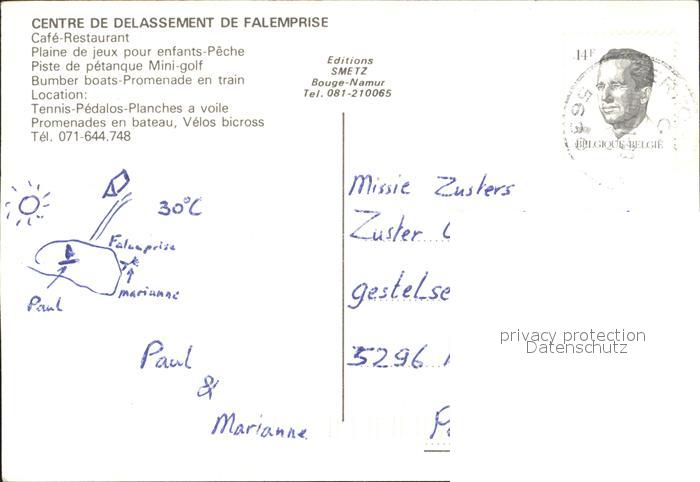 CENTRE DE DELASSEMENT DE FALEMPRISE
Café-Restaurant
Plaine de jeux pour enfants-Pêche
Piste de pétanque Mini-golf
Bumber boats-Promenade en train
Location:
Tennis-Pédalos-Planches a voile
Promenades en bateau, Vélos bicross
Tél. 071-644.748
Editions
SMETZ
Bouge-Namur
Tel. 081-210065
14F
BELGIQUE-BELGIË
30°C
Falemprise
marianne
Paul
Paul
&
Marianne
Missie Zusters
Zuster
gestelse
5296
privacy protection
Datenschutz